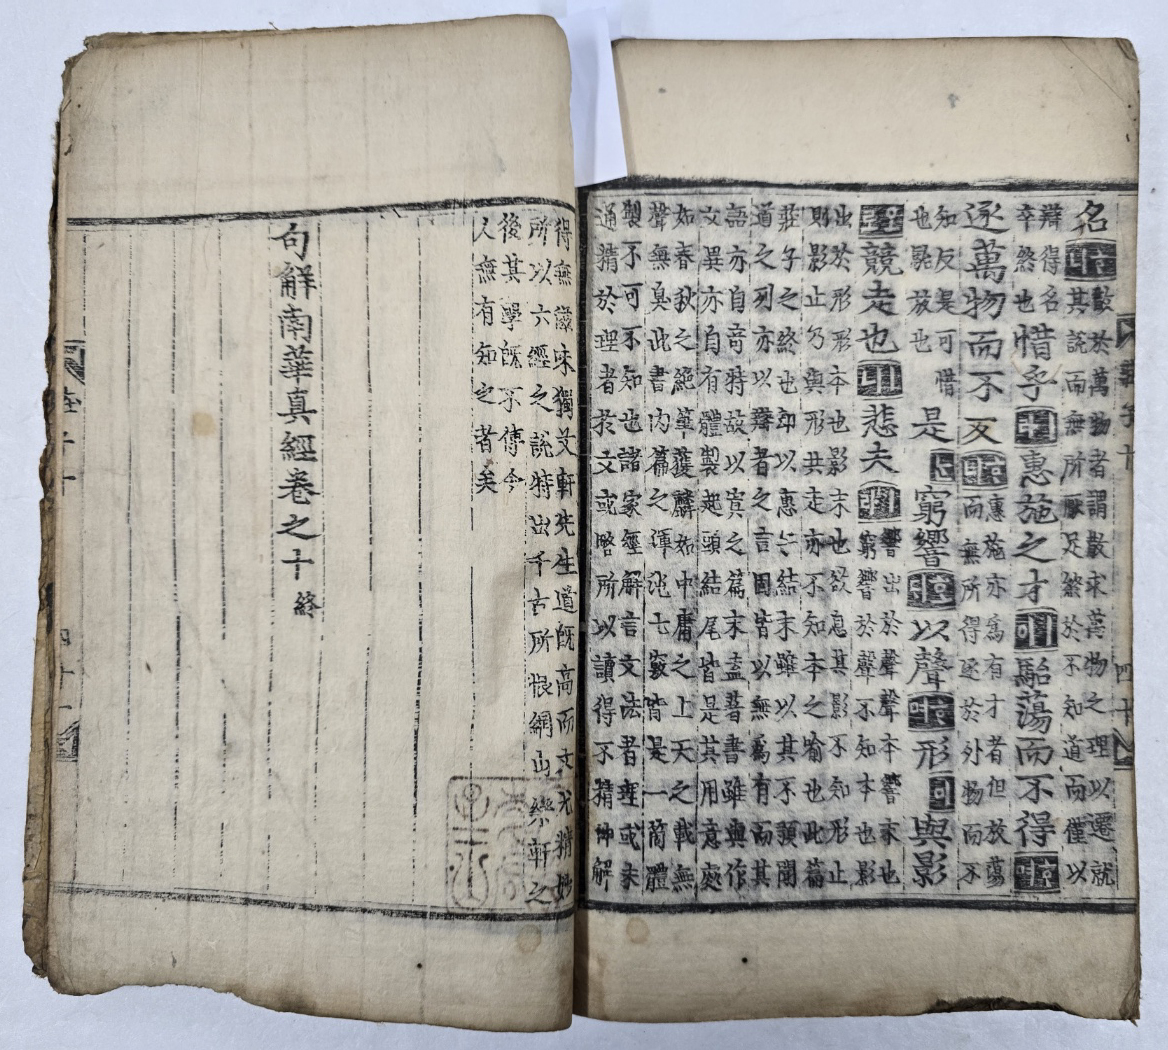 莊子十 四十
名
散於萬物者謂散求萬物之理以遷就
其說而無所厭足然於不知道而僅以
辯得名
卒然也
惜乎惠施之才駘蕩而不得
逐萬物而不反
惠施亦爲有才者但放蕩
而無所得逐於外物而不
知反是可惜
也駘放也
是窮響以聲形與影
競走也悲夫
響出於聲聲本響末也
窮響於聲不知本也影
出於形形本也影末也欲息其影不知形止
則影止乃與形共走亦不知本之喻也此篇
莊子之終也却以惠子結末雖以其不預聞
道之列亦以辯者之言固皆以無爲有而其
語亦自奇特故以寘之篇末盖著書雖與作
文異亦自有體製起頭結尾皆是其用意處
如春秋之絶筆獲麟如中庸之上天之載無
聲無臭此書內篇之渾沌七竅皆是一箇體
製不可不知也諸家經解言文法者理或未
通精於理者於文或略所以讀得不精神解
得無滋味獨艾軒先生道旣高而文尤精妙
所以六經之說特出千古所恨網山樂軒之
後其學旣不傳今
人無有知之者矣
句解南華真經卷之十 終
莊子十 四十一